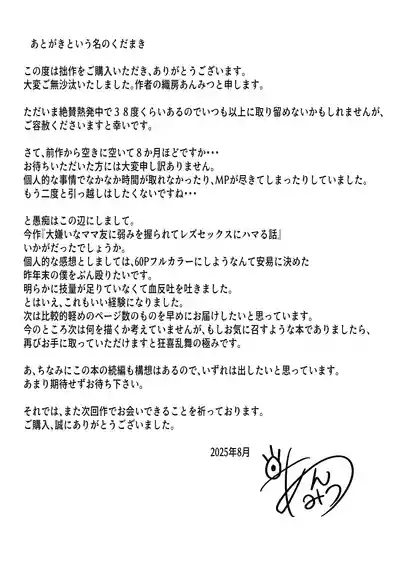 あとがきという名のくだまき
この度は拙作をご購入いただき、ありがとうございます。
大変ご無沙汰いたしました。作者の織房あんみつと申します。
ただいま絶賛熱発中で３８度くらいあるのでいつも以上に取り留めないかもしれませんが、
ご容赦くださいますと幸いです。
さて、前作から空きに空いて８か月ほどですか・・・
お待ちいただいた方には大変申し訳ありません。
個人的な事情でなかなか時間が取れなかったり、MPが尽きてしまったりしていました。
もう二度と引っ越しはしたくないですね・・・
と愚痴はこの辺にしまして。
今作『大嫌いなママ友に弱みを握られてレズセックスにハマる話』
いかがだったでしょうか。
個人的な感想としましては、60Pフルカラーにしようなんて安易に決めた
昨年末の僕をぶん殴りたいです。
明らかに技量が足りていなくて血反吐を吐きました。
とはいえ、これもいい経験になりました。
次は比較的軽めのページ数のものを早めにお届けしたいと思っています。
今のところ次は何を描くか考えていませんが、もしお気に召すような本でありましたら、
再びお手に取っていただけますと狂喜乱舞の極みです。
あ、ちなみにこの本の続編も構想はあるので、いずれは出したいと思っています。
あまり期待せずお待ち下さい。
それでは、また次回作でお会いできることを祈っております。
ご購入、誠にありがとうございました。
2025年8月
あんみつ